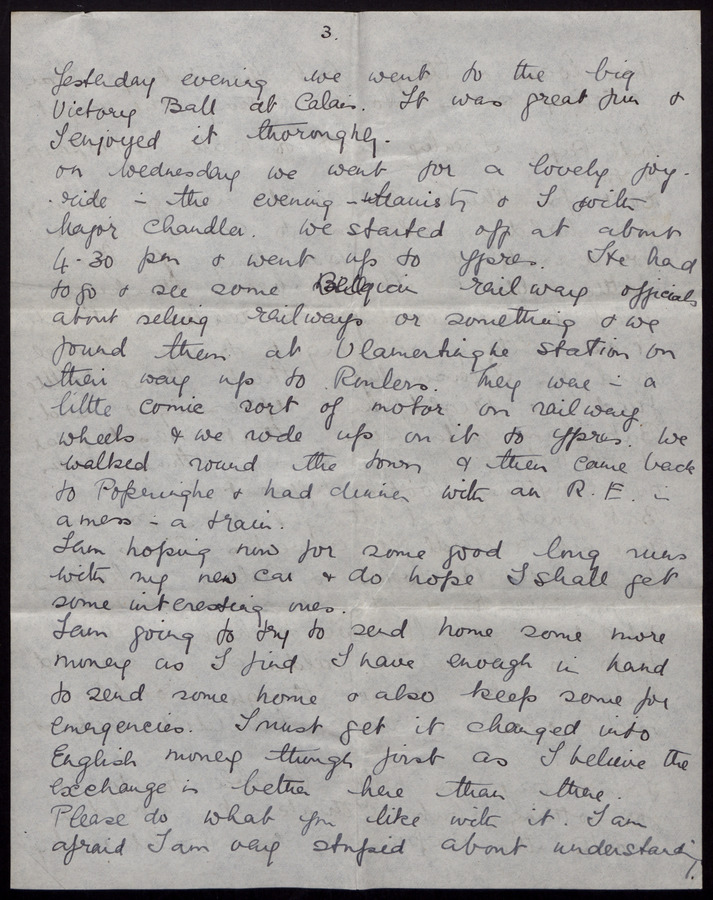 3.
Yesterday evening we went to the big
Victory Ball at Calais. It was great fun &
I enjoyed it thoroughly.
on Wednesday we went for a lovely joy-
-ride in the evening - & I with
Major Chandler. We started off at about
4-30 pm & went up to Ypres. He had
to go & see some Belgian railway officials
about selling railways or something & we
found them at Vlamertinghe station on
their way up to Roulers. They were in a
little comic sort of motor on railway
wheels & we rode up on it to Ypres. We
walked round the town & then came back
to Poperinghe & had dinner with an R.E. in
a mess in a train.
I am hoping now for some good long runs
with my new car & do hope I shall get
some interesting ones.
I am going to try to send home some more
money as I find I have enough in hand
to send some home & also keep some for
emergencies. I must get it changed into
English money though first as I believe the
exchange is better here than there.
Please do what you like with it. I am
afraid I am very stupid about understanding
/.